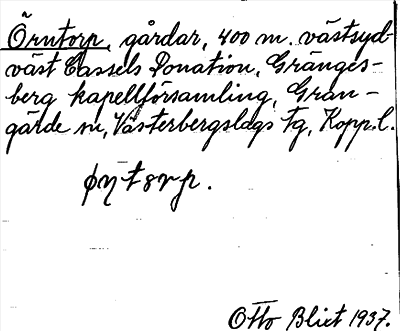 Örntorp, gårdar, 400 m. västsyd-
väst Cassels Donation, Gränges-
berg kapellförsamling, Gran-
gärde sn, Västerbergslags tg, Kopp. l.
ø̨ŋtərp.
Otto Blixt 1937.